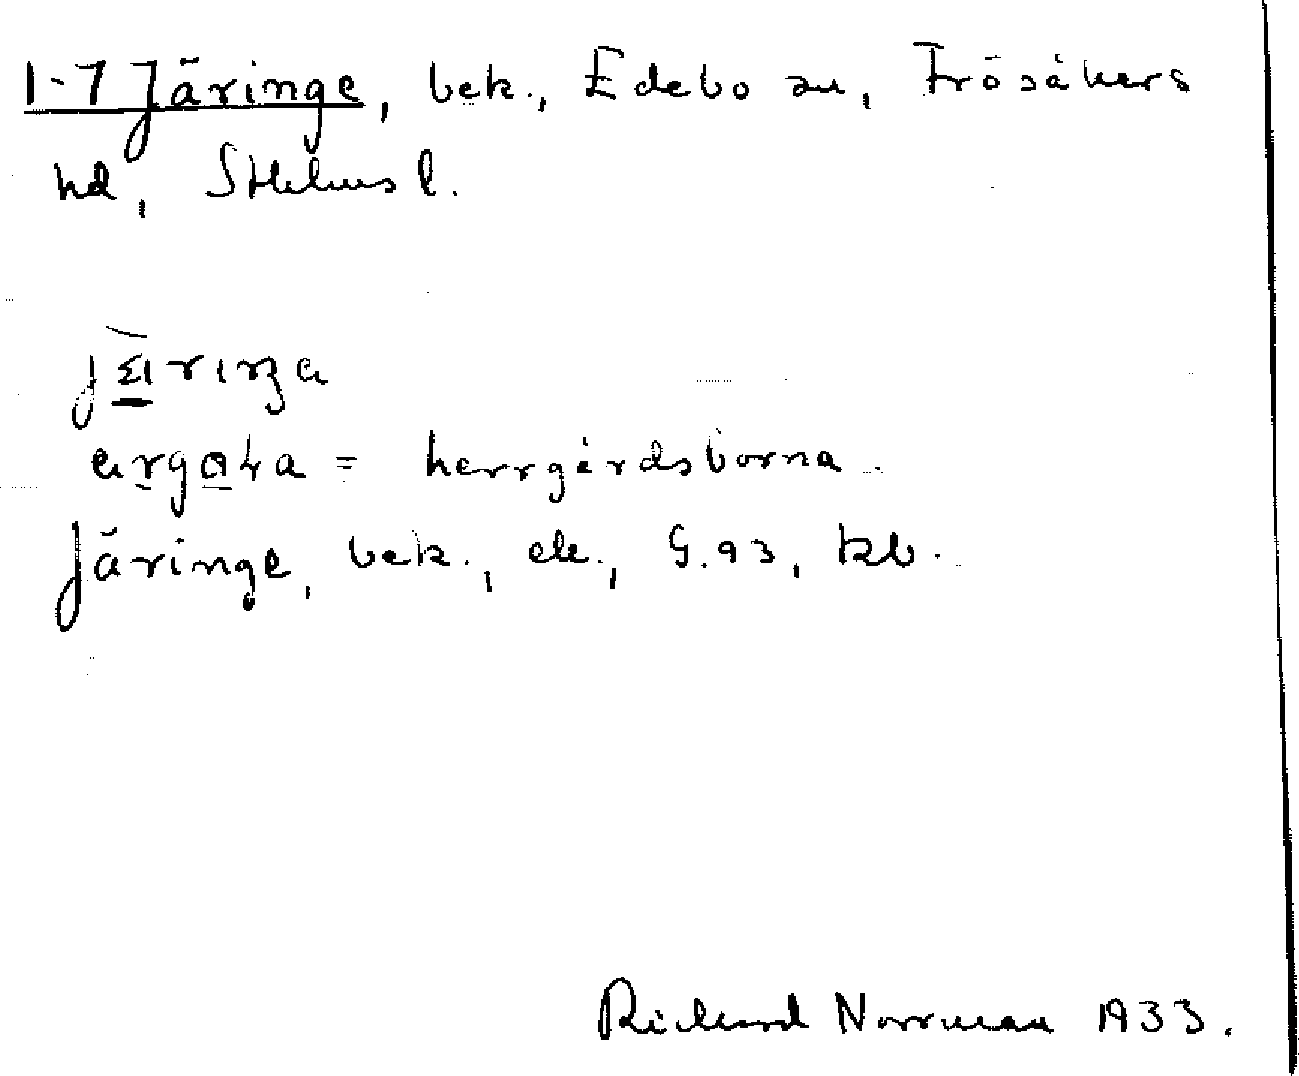 1-7 Järinge, bek., Edebo sn, Frösåkers
hd, Sthlms l.
= herrgårdsborna.
Järinge, bek., ek., G.93, kb.
Rickard Norrman 1933.